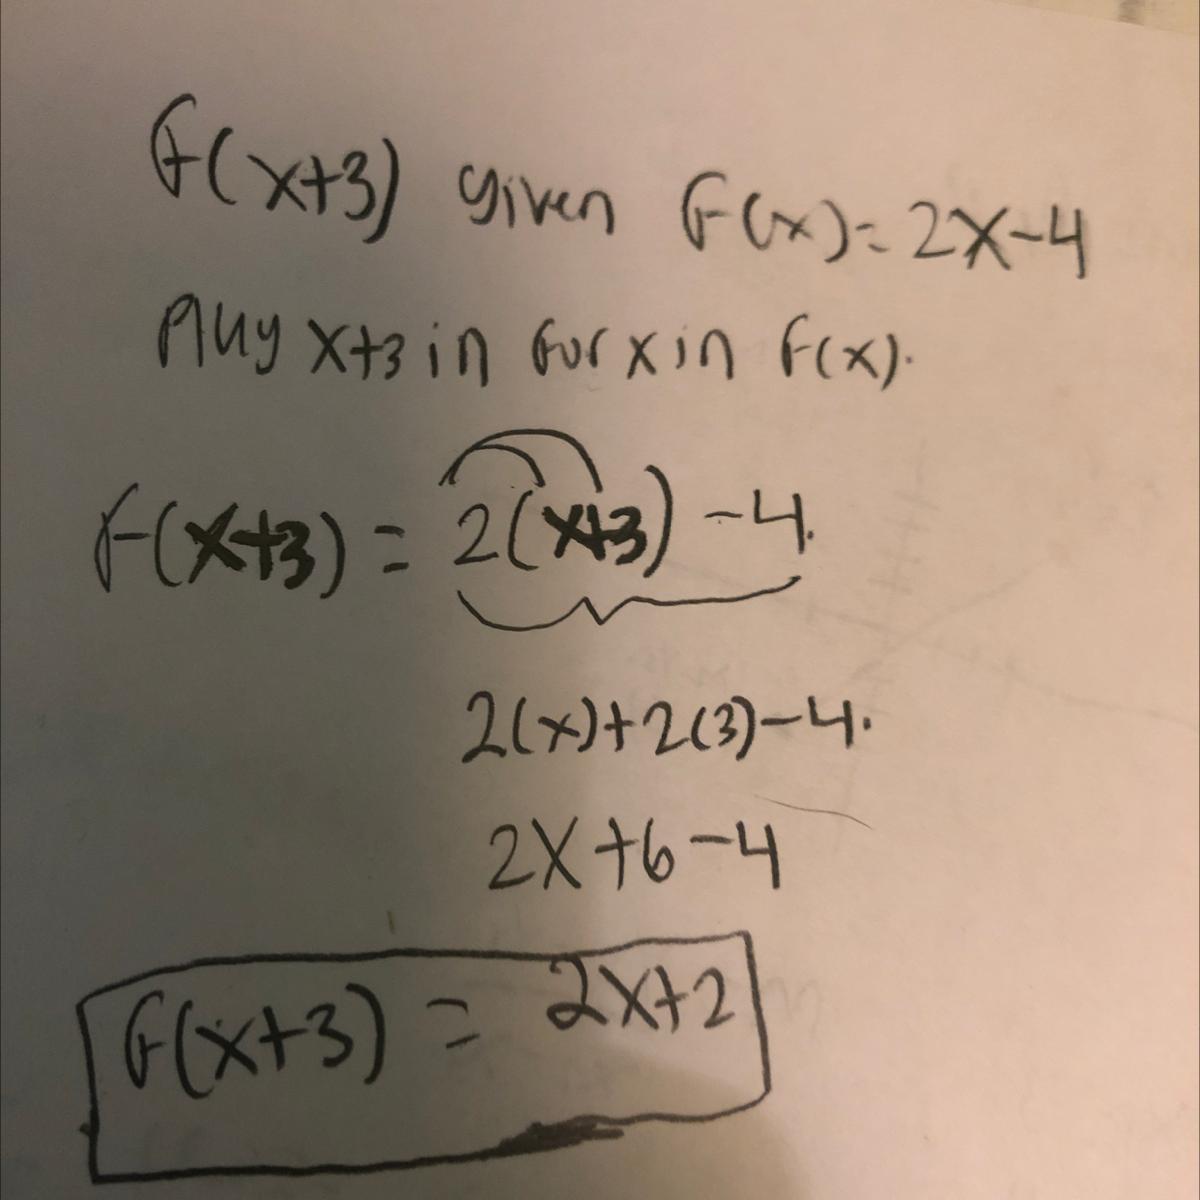 F(x+3) given F(x)=2x-4
Plug x+3 in for x in F(x).
F(x+3) = 2(x+3) -4.
2(x)+2(3)-4.
2x+6-4
F(x+3) = 2x+2